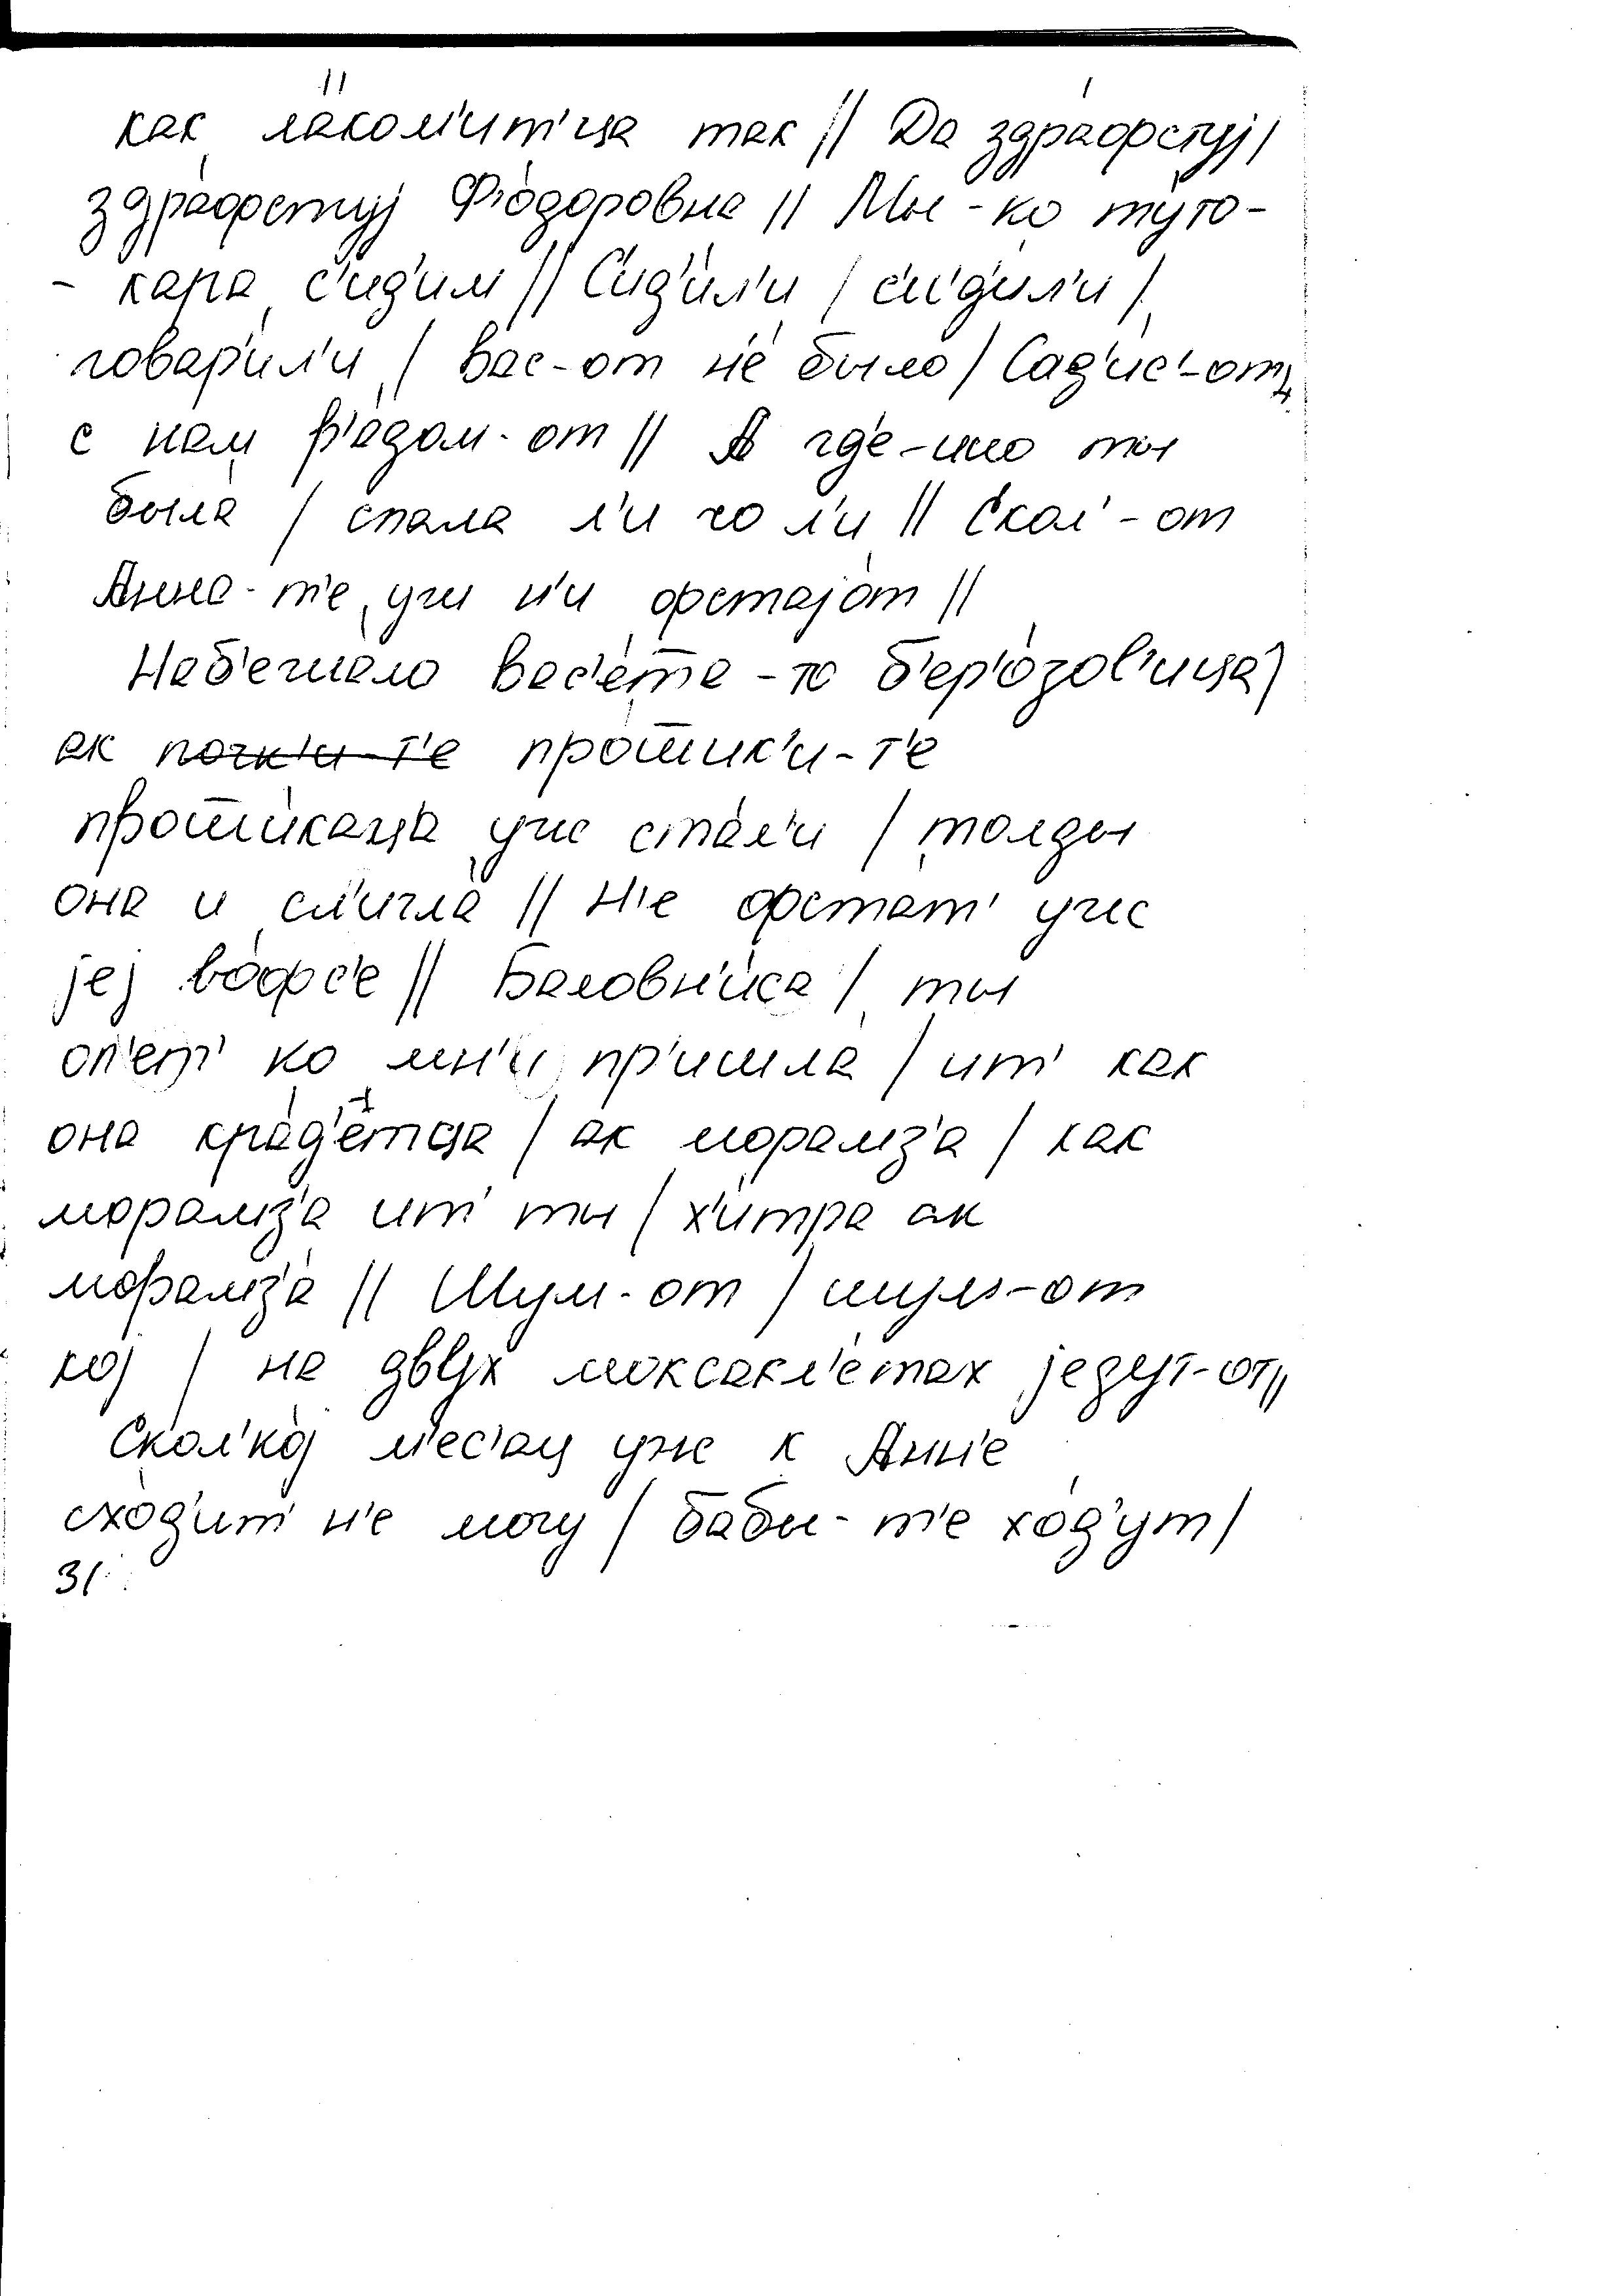 как ла́ком'ит'ца так // Да здра́фствуj /
здра́фстуj Ф'о́доровна // Мы-ко ту́то-
-кара с'ид'и́м // С'ид'и́л'и / с'ид'и́л'и /
говар'и́л'и / вас-от н'е́ было / Сад'и́с'-от //
с нам р'а́дом-от // А гд'е-жо ты
была́ / спала́ л'и чо л'и // Скол'-от
Анна-т'е уж н'и фстаjо́т //
Наб'ежало вас'е́та-то б'ер'о́зов'ица /
ак про̄шик'и-т'е
про̄ши́каца уж ста́л'и / толды́
она и сл'игла́ // Н'е фстат' уж
jеj во́фс'е // Баловн'и́са / ты
оп'ет' ко мн'и пр'ишла́ / ит' как
она кра́д'етца / ак морамз'а́ / как
морамз'а́ ит' ты / х'и́тра ак
морамз'а́ // Шум-от / шум-от
коj / на двух моксакл'е́тах jе́дут-от //
Скол'ко́j м'е́с'ац уж к Анн'е
сход'и́т' н'е могу́ / бабы-т'е хо́д'ут /
31